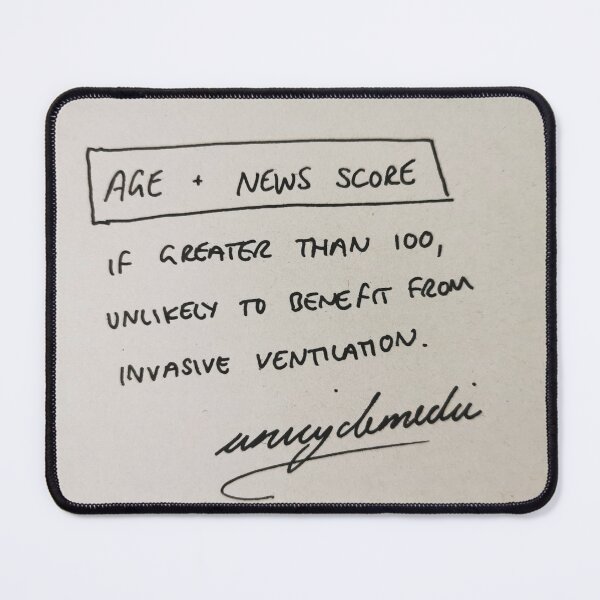 AGE + NEWS SCORE
IF GREATER THAN 100,
UNLIKELY TO BENEFIT FROM
INVASIVE VENTILATION.
unicyclemedic